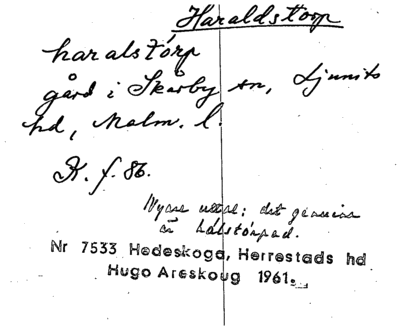 Haraldstorp
haralstórp
gård i Skårby sn, Ljunits
hd, Malm. l.
K. f. 86.
Nyare uttal; det genuina
är hálstórpad.
Nr 7533 Hedeskoga, Herrestads hd
Hugo Areskoug 1961.